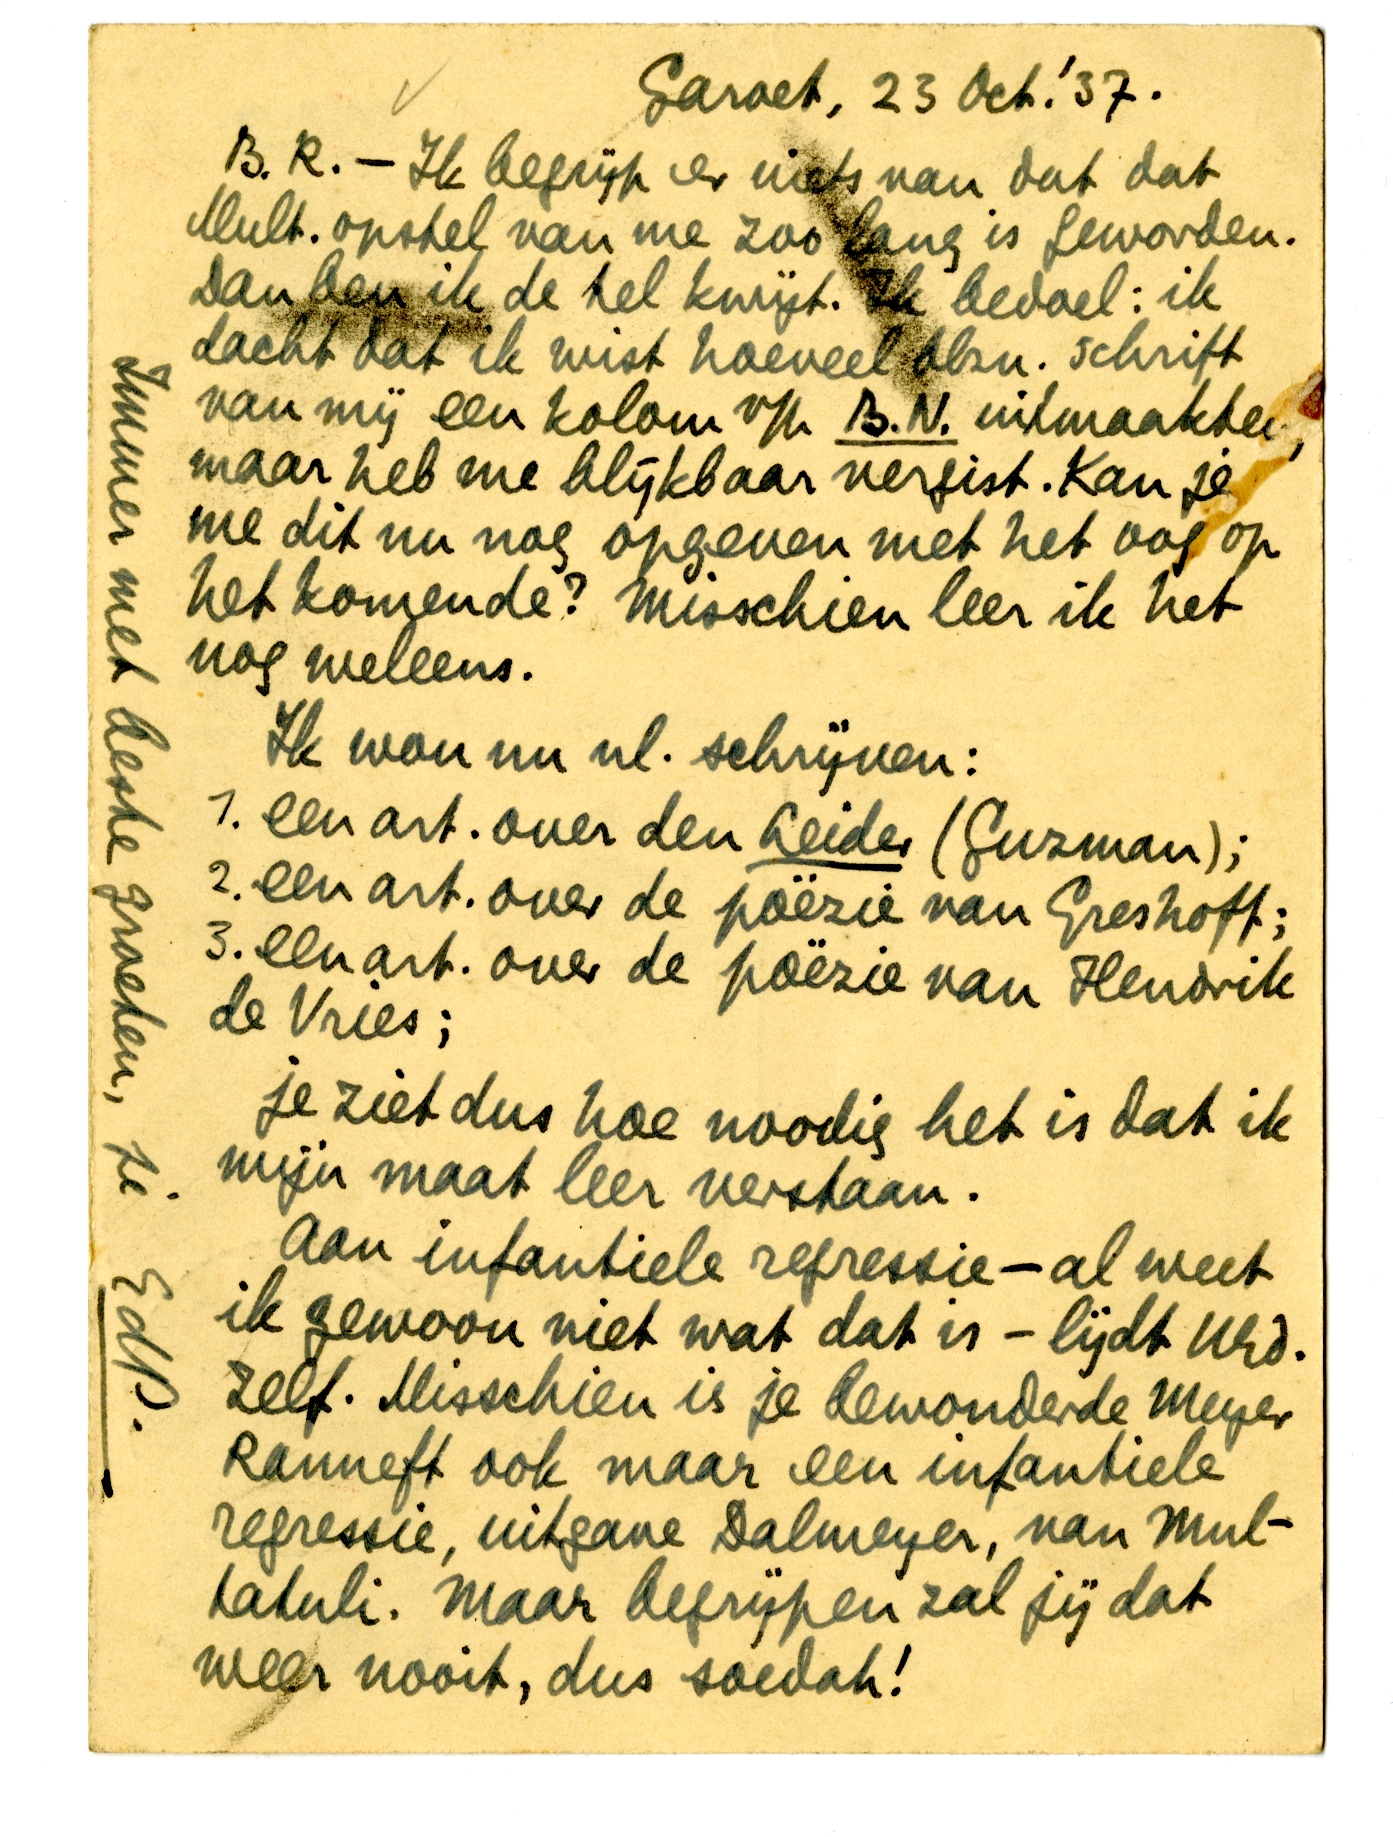 Garoet, 23 Oct. '37.
B. R. — Ik begrijp er niets van dat dat
Mult. opstel van me zoo lang is geworden.
Dan ben ik de tel kwijt. Ik bedoel: ik
dacht dat ik wist hoeveel blzn. schrift
van mij een kolom v/h B.N. uitmaakten,
maar heb me blijkbaar vergist. Kan je
me dit nu nog opgeven met het oog op
het komende? Misschien leer ik het
nog weleens.
Ik wou nu nl. schrijven:
1. een art. over den Leider (Guzman);
2. een art. over de poëzie van Greshoff;
3. een art. over de poëzie van Hendrik
de Vries;
je ziet dus hoe noodig het is dat ik
mijn maat leer verstaan.
Aan infantiele regressie — al weet
ik gewoon niet wat dat is — lijdt
zelf. Misschien is je bewonderde Meyer
Ranneft ook maar een infantiele
regressie, uitgave Dalmeyer, van Mul-
tatuli. Maar begrijpen zal jij dat
weer nooit, dus soedah!
Immer met beste groeten, je EdP.